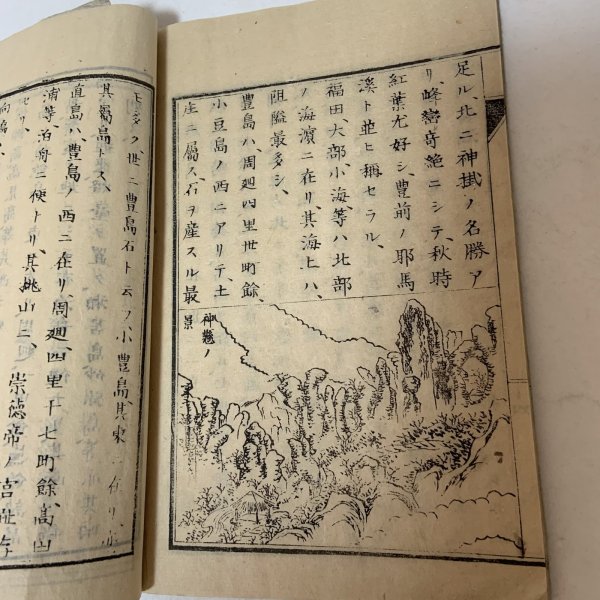 足ル、北ニ神掛ノ名勝ア
リ、峰巒奇絶ニシテ、秋時
紅葉尤好シ、豊前ノ耶馬
溪ト並ヒ稱セラル、
福田、大部、小海、等ハ北部
ノ海濱ニ在リ、其海上ハ、
阻隘最多シ、
豊島ハ、周廻四里廿町餘、
小豆島ノ西ニアリテ、土
庄ニ屬ス、石ヲ産スル最
神懸ノ
景
モ多ク、世ニ豊島石ト云フ、小豊島其東ニ在リ、
其屬島トス、
直島ハ、豊島ノ西ニ在リ、周廻四里十七町餘、高山
浦等、泊舟ニ便トリ、其桃山ニ、崇德帝ノ宮址存
セリ、